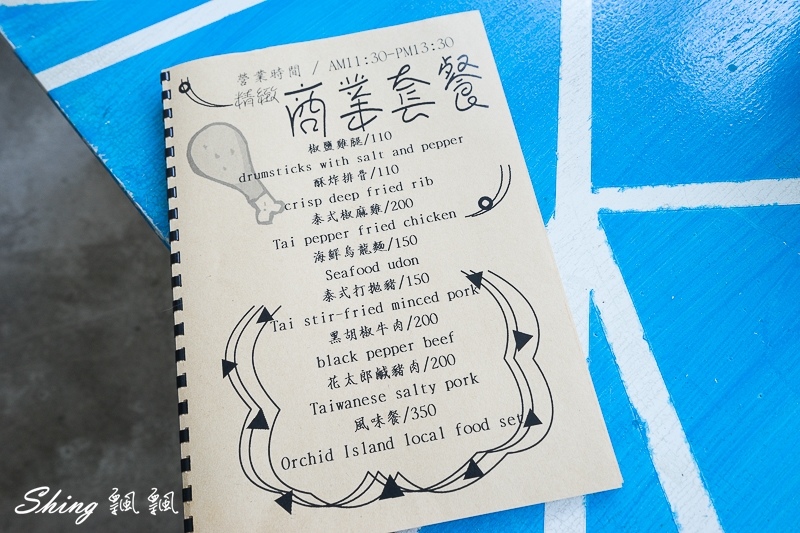 營業時間 / AM11:30-PM13:30
精緻 商業套餐
椒鹽雞腿/110
drumsticks with salt and pepper
酥炸排骨/110
crisp deep fried rib
泰式椒麻雞/200
Tai pepper fried chicken
海鮮烏龍麵/150
Seafood udon
泰式打拋豬/150
Tai stir-fried minced pork
黑胡椒牛肉/200
black pepper beef
花太郎鹹豬肉/200
Taiwanese salty pork
風味餐/350
Orchid Island local food set
Shing 飄飄